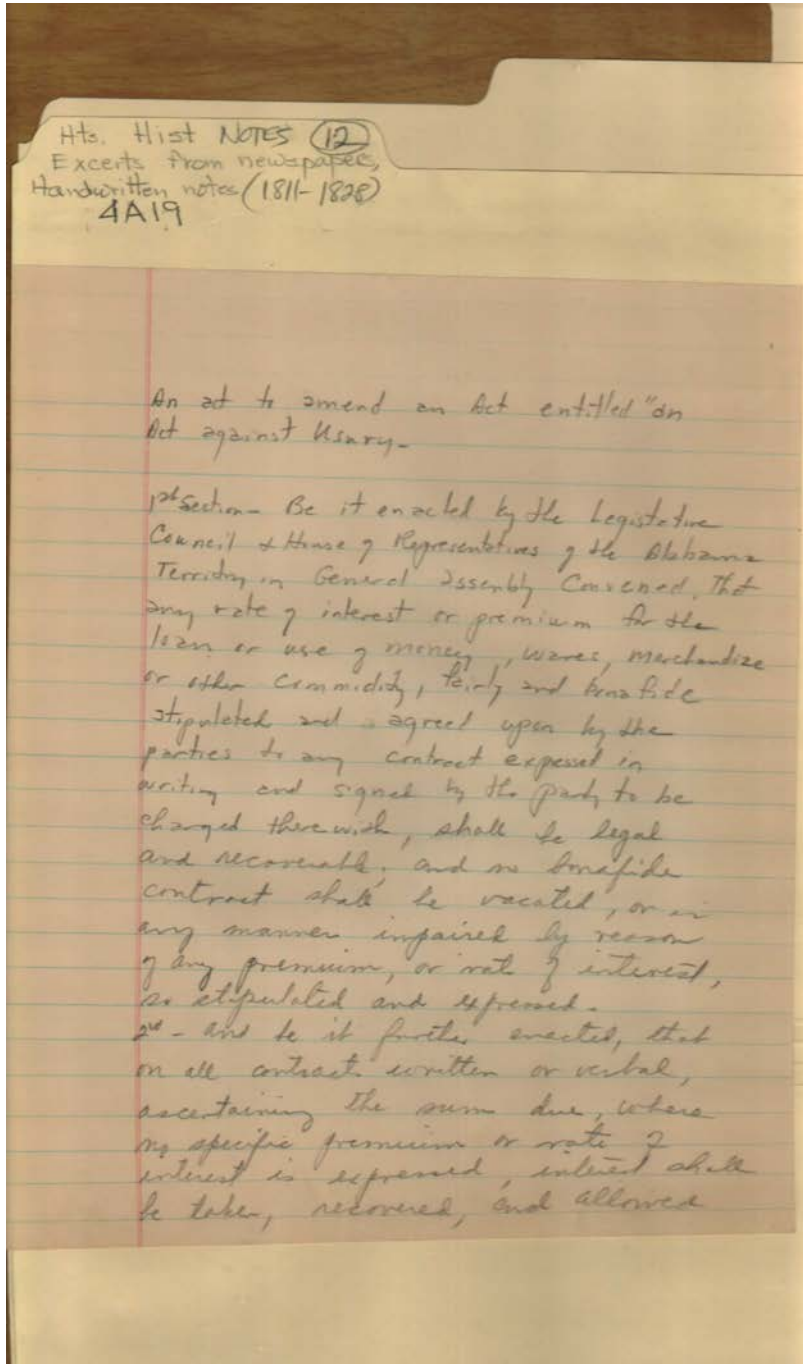 Hts. Hist NOTES 12
Excerts from newspapers,
Handwritten notes (1811-1828)
4A19
An act to amend an Act entitled "an
Act against Usury-
1st Section - Be it enacted by the Legislative
Council & House of Representatives of the Alabama
Territory in General assembly Convened, That
any rate of interest or premium for the
loan or use of money, wares, merchandize
or other Commidity, fairly and bona fide
stipulated and agreed upon by the
parties to any contract expessed in
writing and signed by the party to be
charged therewith, shall be legal
and recoverable; and no bonafide
contract shall be vacated, or in
any manner impaired by reason
of any premium, or rate of interest,
so stipulated and expressed.
2nd - And be it further enacted, that
on all contracts written or verbal,
ascertaining the sum due, where
no specific premium or rate of
interest is expressed, interest shall
be taken, recovered, and allowed